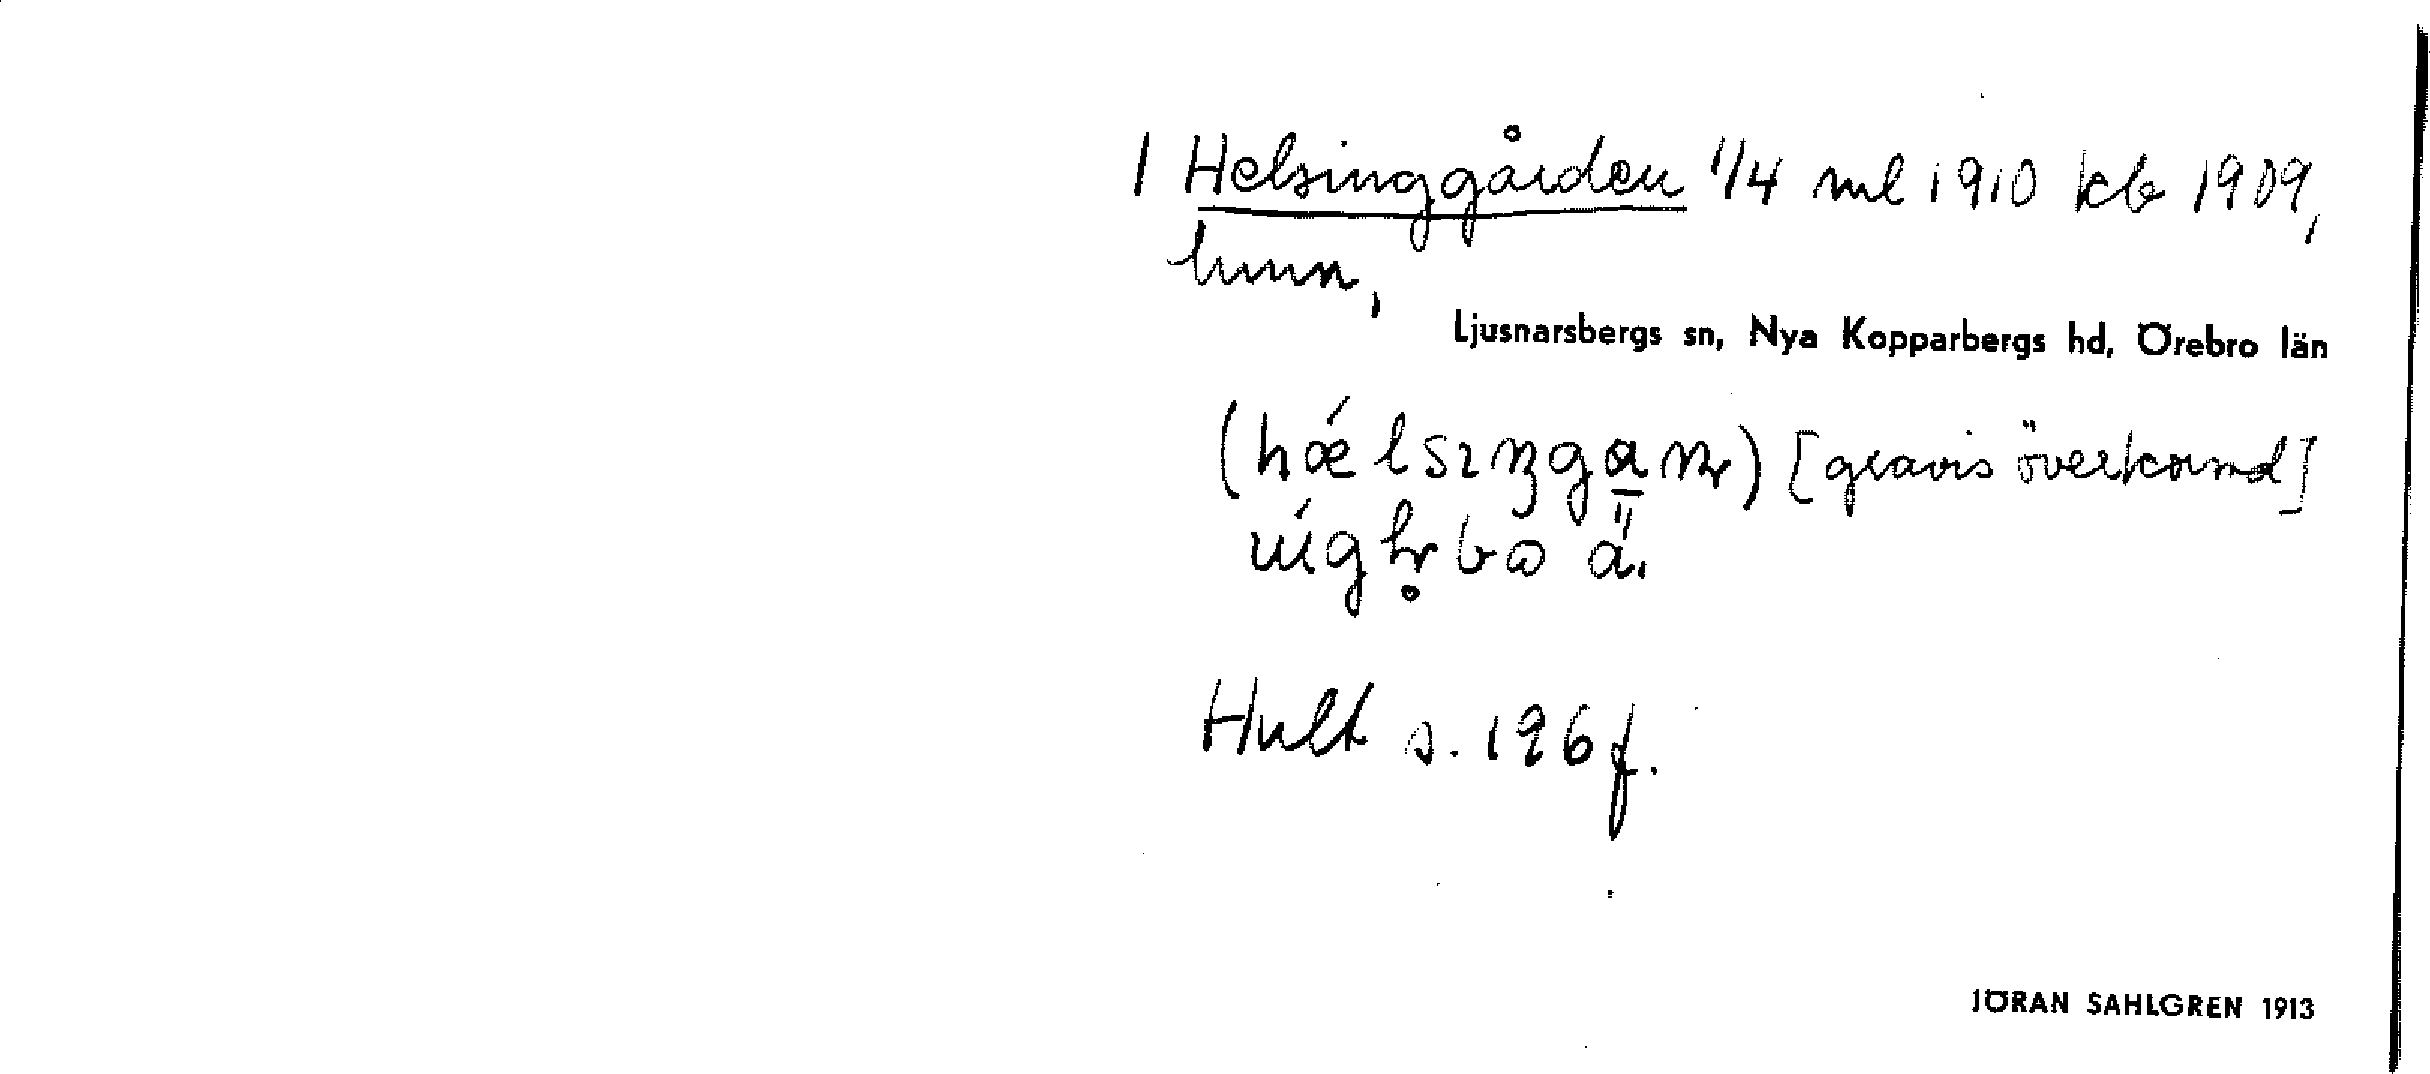 1 Helsinggården 1/4 ml 1910 kb 1909,
hmn,
Ljusnarsbergs sn, Nya Kopparbergs hd, Örebro län
(hǽlsıŋgan) [gravis överkorsad]
Hult s. 196 f.
JÖRAN SAHLGREN 1913